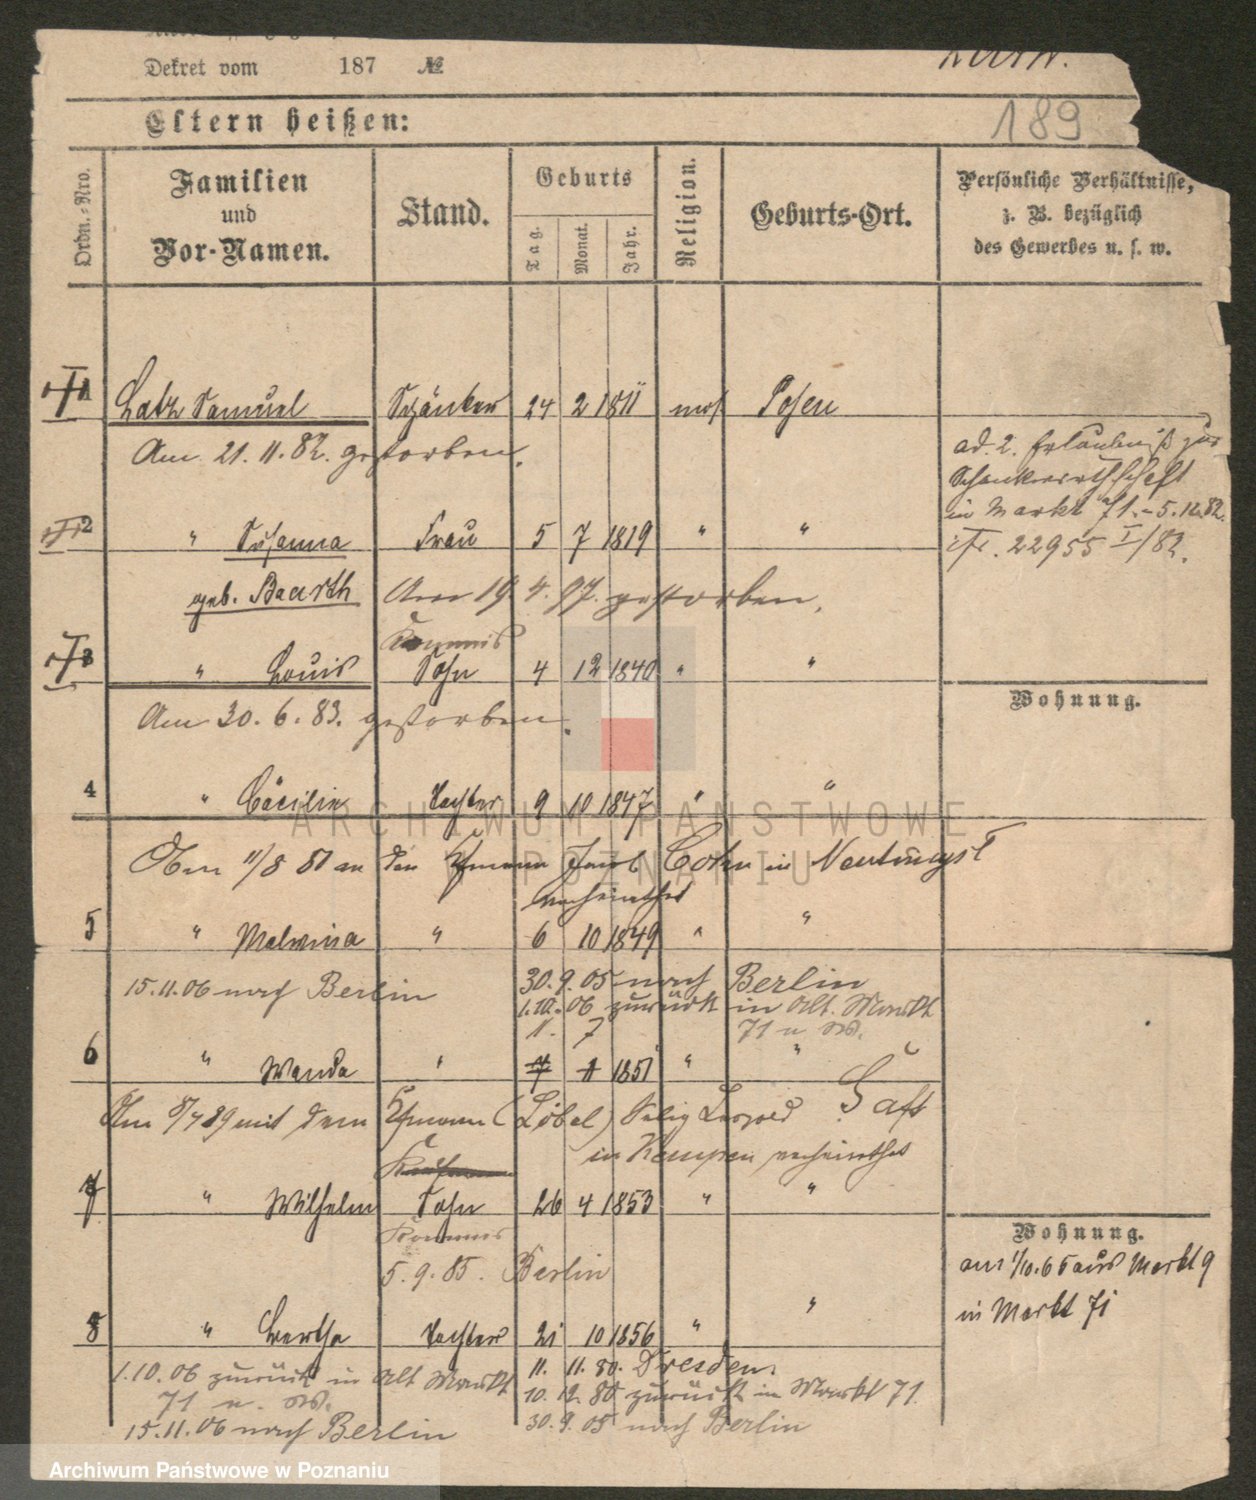 Dekret vom 187 №
189
Eltern heißen:
Ordn.-Nro.
Familien
und
Vor-Namen.
Stand.
Geburts
Tag.
Monat.
Jahr.
Religion.
Geburts-Ort.
Persönliche Verhältnisse,
z. B. bezüglich
des Gewerbes u. s. w.
1 Latz Samuel Schänker 24 2 1811 mos Posen
Am 21. 11. 82. gestorben.
ad. 2. Erlaubniß zur
Schankwirthschaft
in Markt 71. - 5.12.82.
22955 I/82.
2 " Susanna Frau 5 7 1819 " "
geb. Baarth Am 19. 4. 97. gestorben.
Kommis
3 " Louis Sohn 4 12 1840 " "
Wohnung.
Am 30. 6. 83. gestorben.
4 " Cäcilie Tochter 9 10 1847 " "
ARCHIWUM PAŃSTWOWE
W POZNANIU
11/8 81 an den Kfmann Jacob Cohn in
verheirathet
5 " Malwina " 6 10 1849 " "
15.11.06 nach Berlin 30.9.05 nach Berlin
1.10.06 zurück in Alt. Markt
11. 7 71 u. W.
6 " Wanda " 7 1 1851 " "
Am 8/4 89 mit dem Kfmann (Löbel) Selig Leopold
in Kempen verheirathet
Kaufmann
7 " Wilhelm Sohn 26 4 1853 " "
Wohnung.
Kommis
am 1/10.65 aus Markt 9
5.9.85. Berlin
in Markt 71
8 " Bertha Tochter 21 10 1856 " "
1.10.06 zurück in Alt Markt 11. 11. 80. Dresden.
71 u. W. 10.12.80 zurück in Markt 71.
15.11.06 nach Berlin 30.9.05 nach Berlin
Archiwum Państwowe w Poznaniu